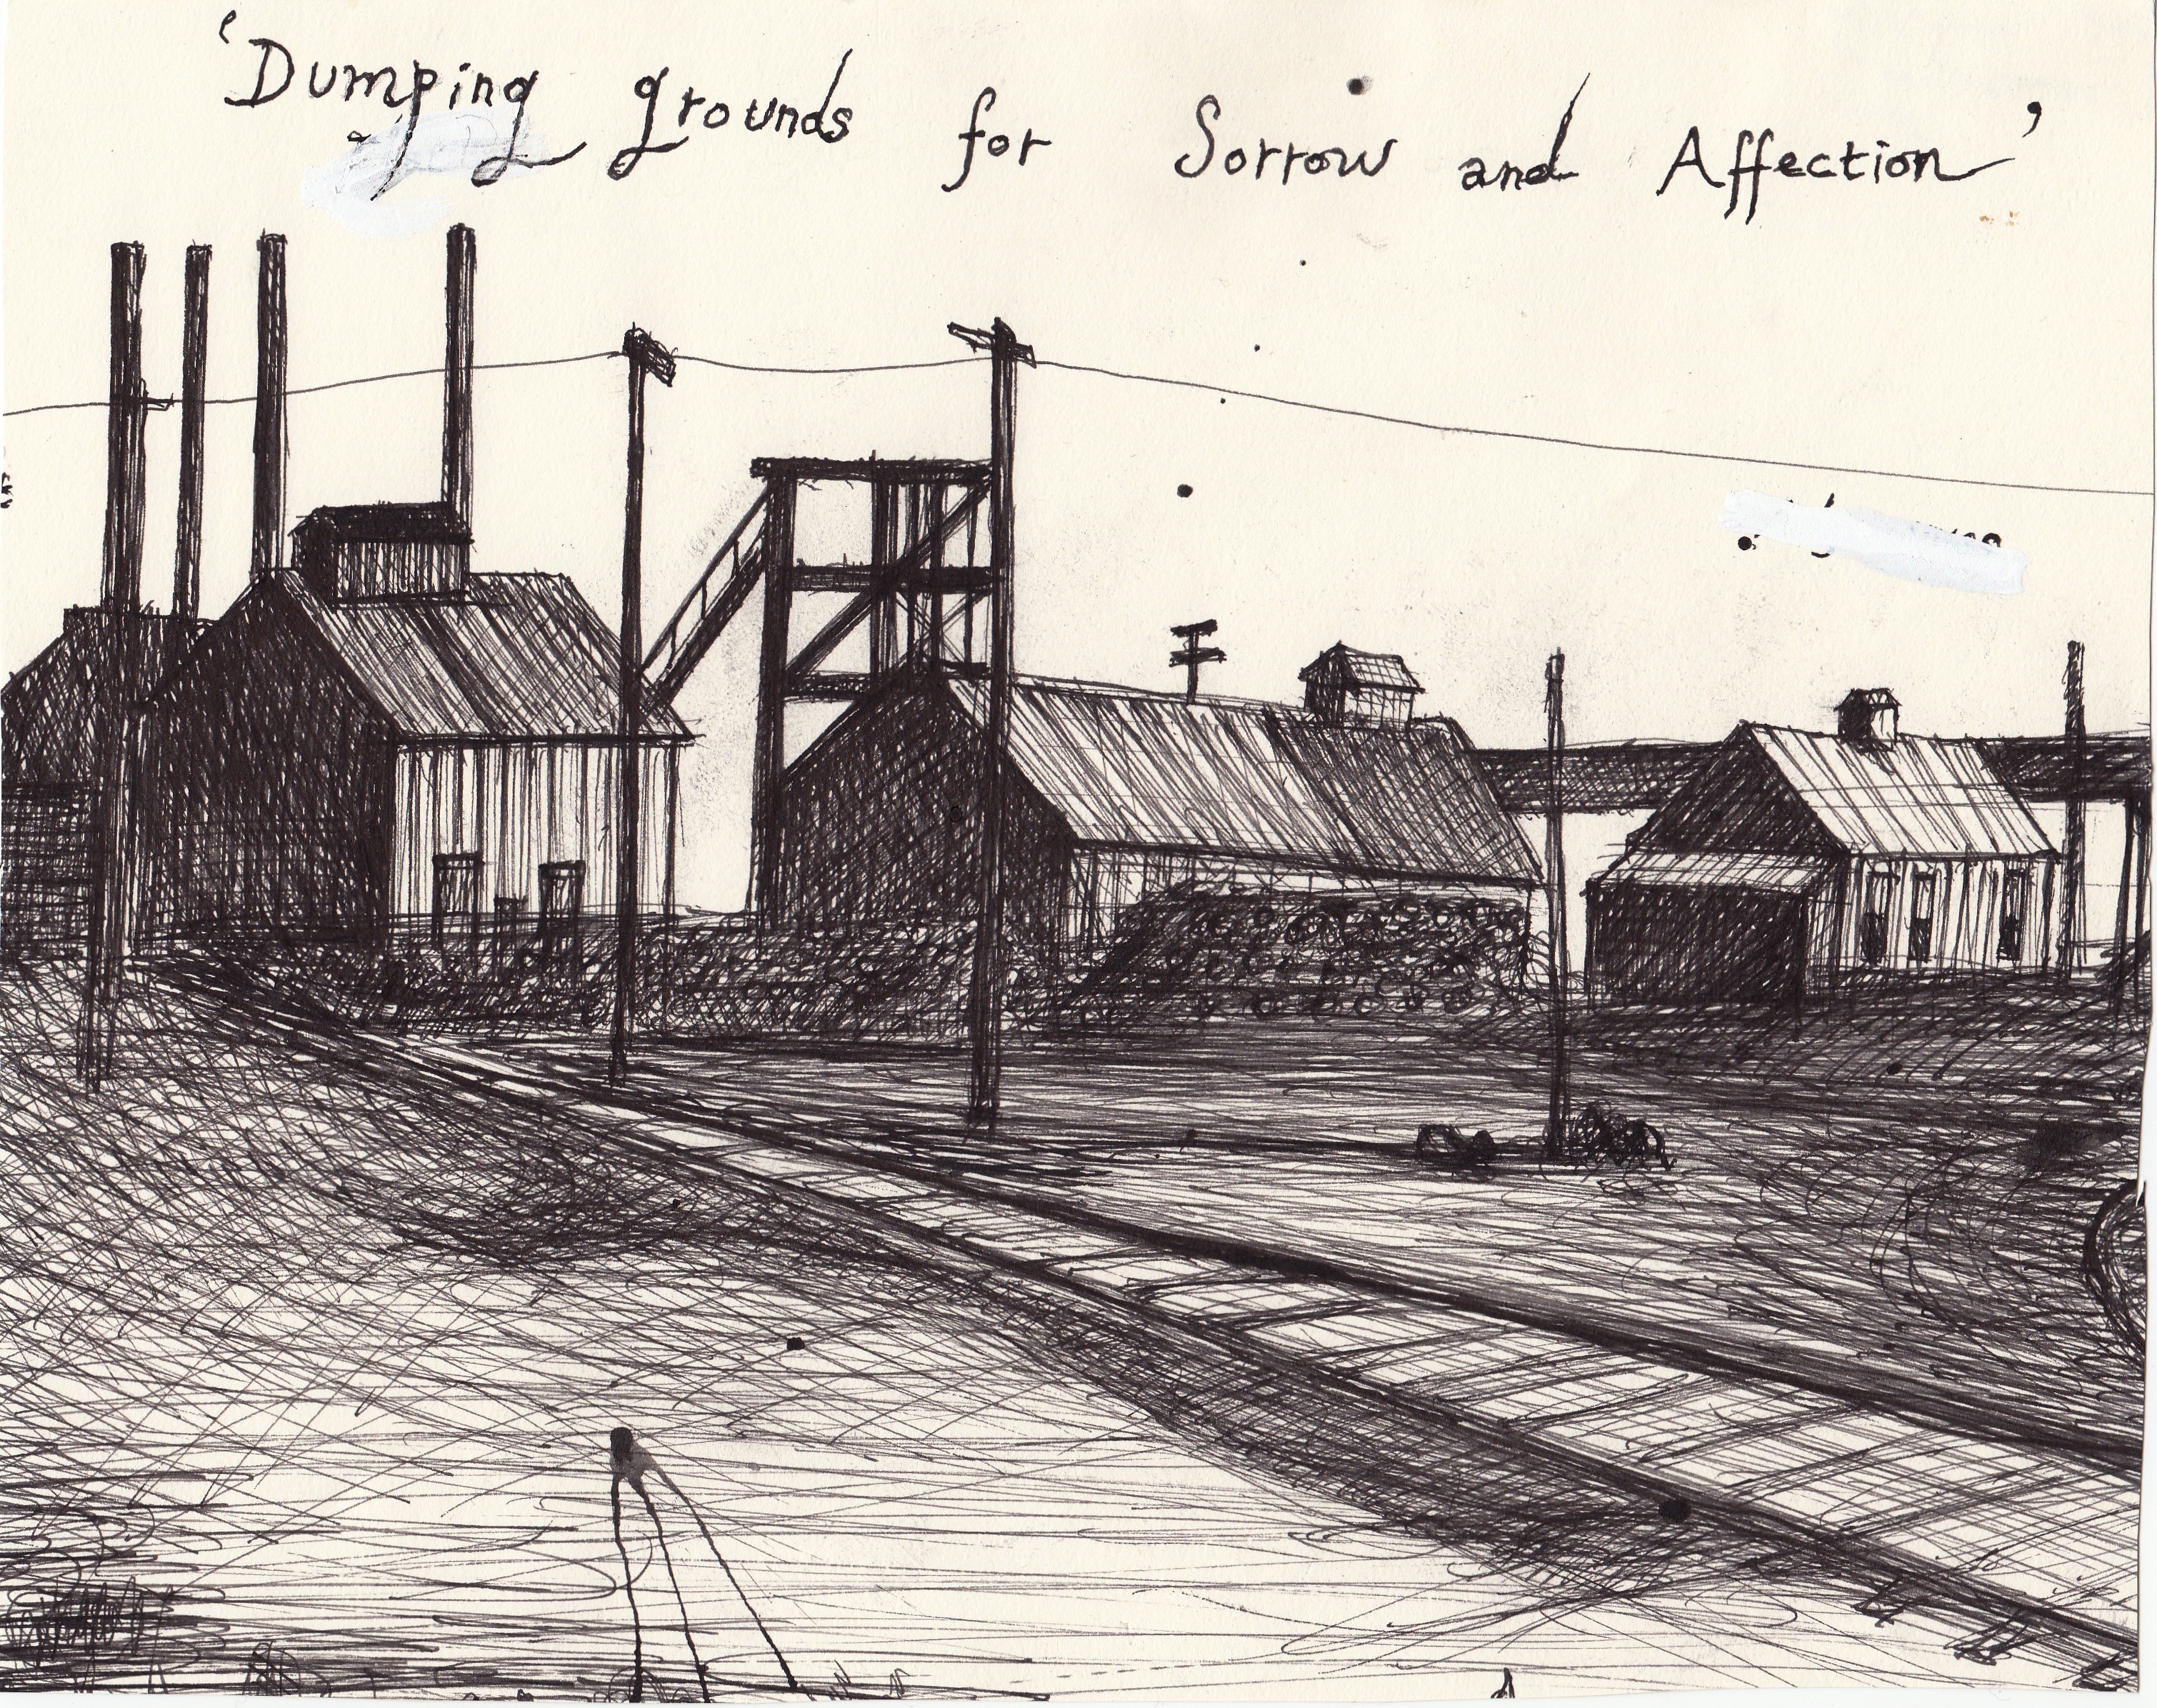 'Dumping grounds for Sorrow and Affection'